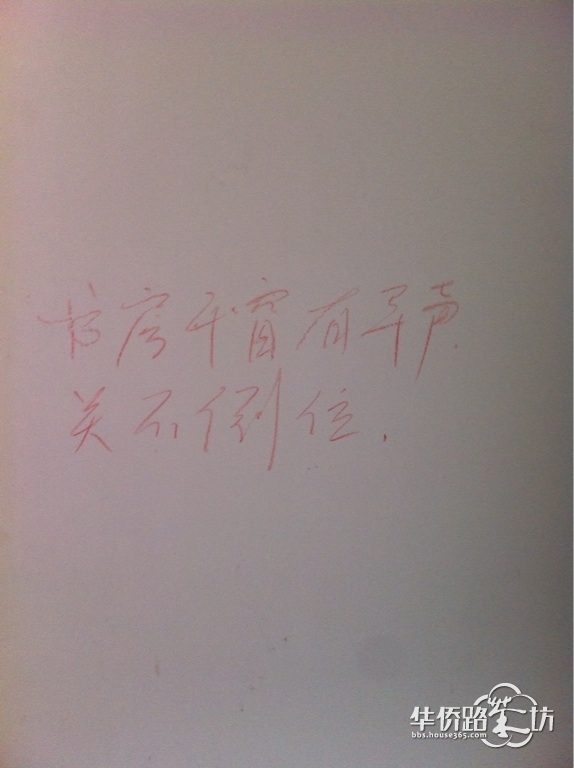 书房平窗有异声
关不倒位.
华侨路茶坊
bbs.house365.com